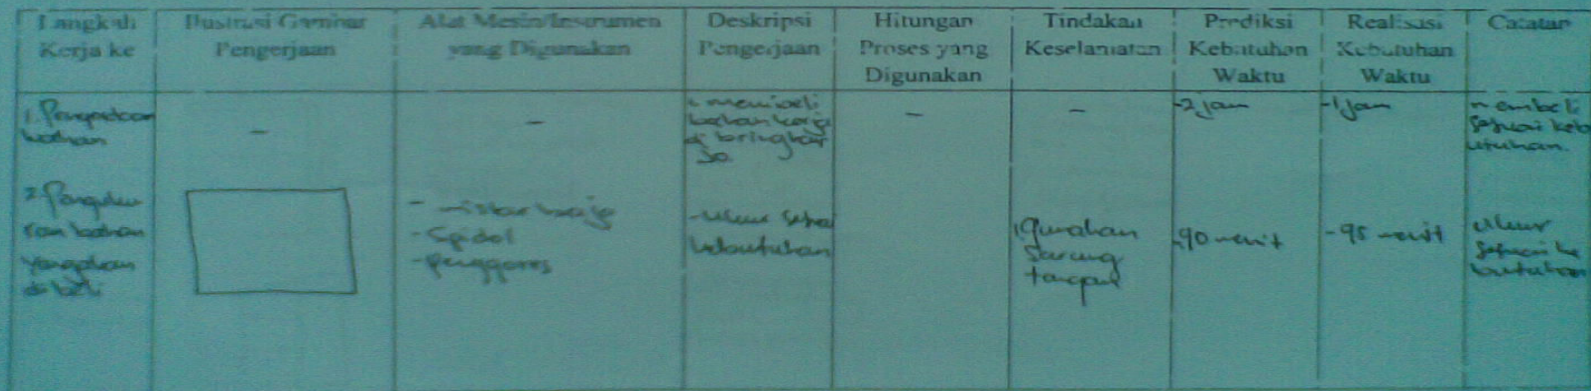 Langkah Kerja ke
Ilustrasi Gambar Pengerjaan
Alat Mesin/Instrumen yang Digunakan
Deskripsi Pengerjaan
Hitungan Proses yang Digunakan
Tindakan Keselamatan
Prediksi Kebutuhan Waktu
Realisasi Kebutuhan Waktu
Catatan
1. Pengadaan
bahan
-
-
membeli
bahan kerja
di
-
-
-2 jam
-1 jam
membeli
sesuai keb
utuhan.
2. Penguku
ran bahan
yang akan
di beli
- mistar baja
- Spidol
- penggores
-ukur
kebutuhan
gunakan
Sarung
tangan
90 menit
-95 menit
ukur
sesuai ke
butuhan